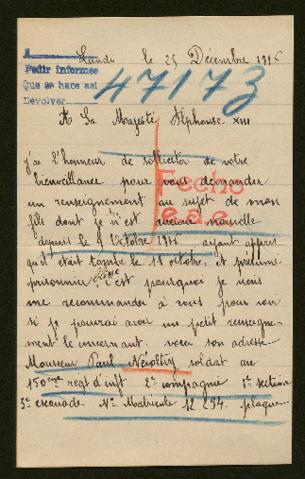 Lundi le 25 Décembre 1916
A
Pedir informes
Que se hace asi
Devolver
47173
A Sa Majesté Alphonse XIII
j'ai l'honneur de solliciter de votre
bienveillance pour vous demander
un renseignement au sujet de mon
fils dont je n'ai aucune nouvelle
depuis le 9 Octobre 1916 ayant appris
qu'il était tombé le 18 octobre, et présumé
prisonnier blessé c'est pourquoi je viens
me recommander à vous pour voir
si je pourai avoir un petit renseigne-
ment le concernant. voici son adresse
Monsieur Paul soldat au
150eme regt d'inft 2e compagnie 1e section
3e escouade Ne Matricule 12 294 plaque
Fecho